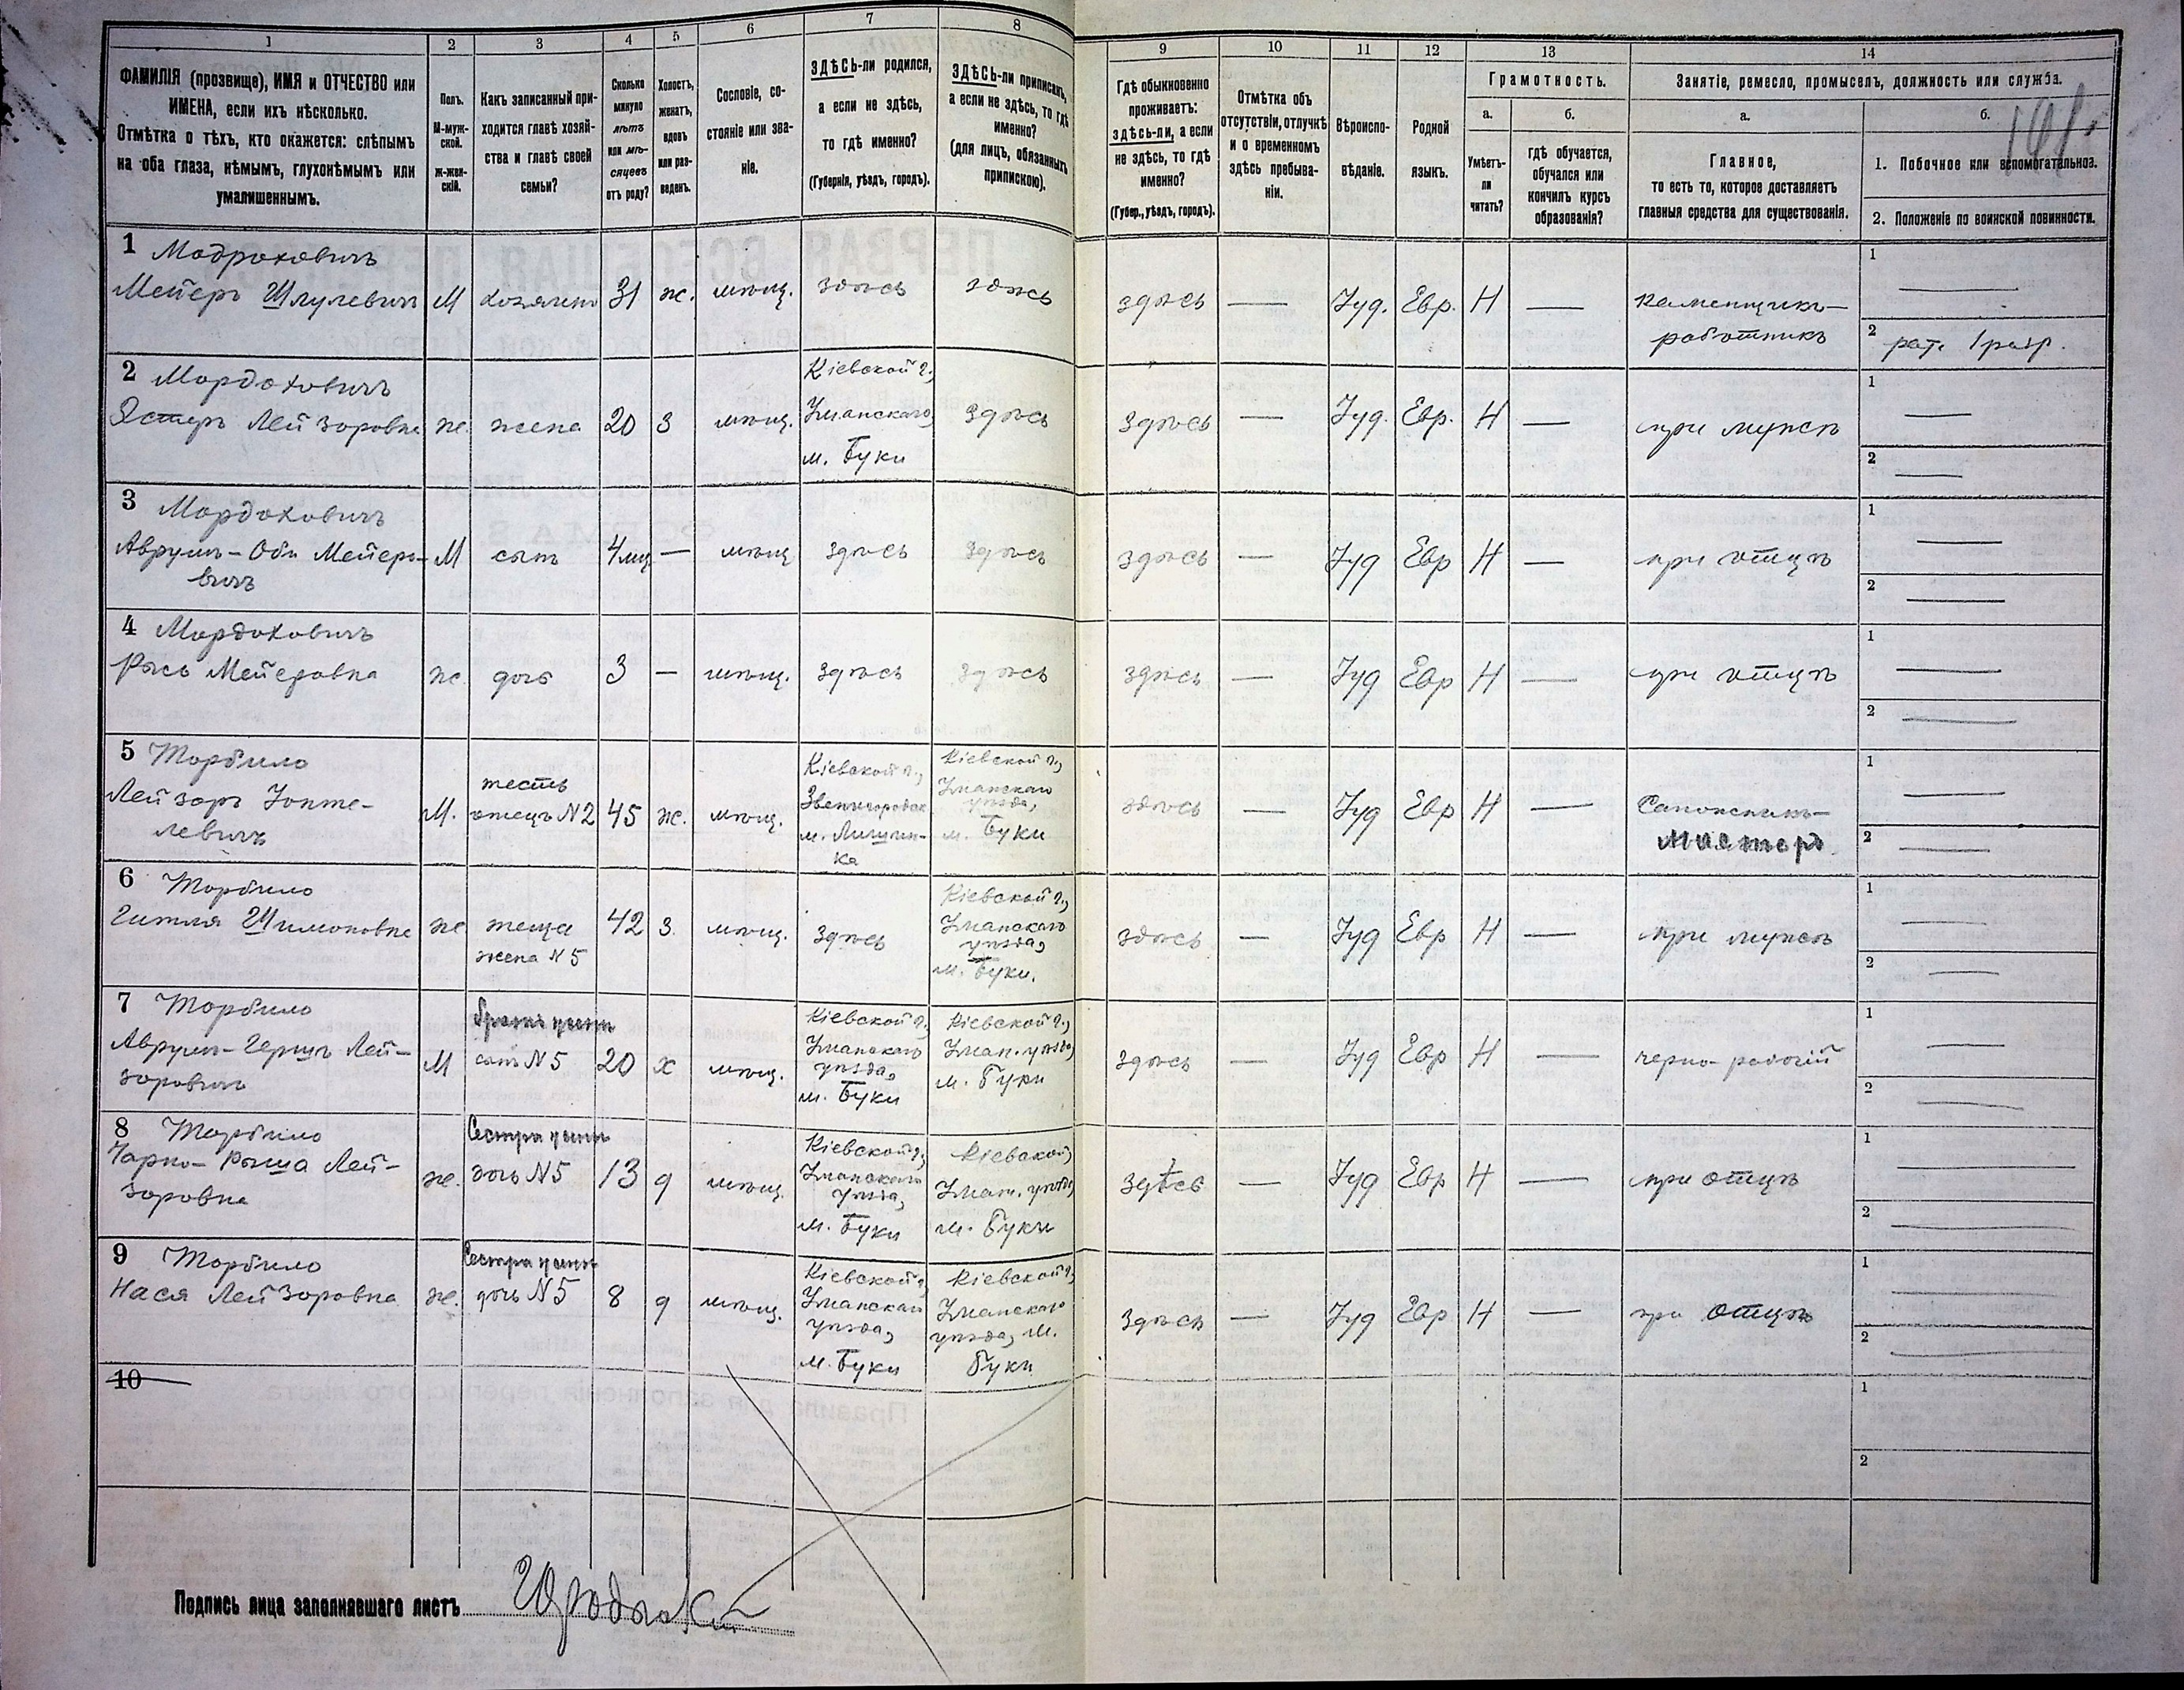 1
2
3
4
5
6
7
8
ФАМИЛІЯ (прозвище), ИМЯ и ОТЧЕСТВО или
ИМЕНА, если ихъ нѣсколько.
Отмѣтка о тѣхъ, кто окажется: слѣпымъ
на оба глаза, нѣмымъ, глухонѣмымъ или
умалишеннымъ.
Полъ.
М-муж-
ской.
ж-жен-
скій.
Какъ записанный при-
ходится главѣ хозяй-
ства и главѣ своей
семьи?
Сколько
минуло
лѣтъ
или мѣ-
сяцевъ
отъ роду?
Холостъ,
женатъ,
вдовъ
или раз-
веденъ.
Сословіе, со-
стояніе или зва-
ніе.
ЗДѢСЬ-ли родился,
а если не здѣсь,
то гдѣ именно?
(Губернія, уѣздъ, городъ).
ЗДѢСЬ-ли приписанъ,
а если не здѣсь, то гдѣ
именно?
(для лицъ, обязанныхъ
припиской).
9
10
11
12
13
14
Гдѣ обыкновенно
проживаетъ:
здѣсь-ли, а если
не здѣсь, то гдѣ
именно?
(Губер., уѣздъ, городъ).
Отмѣтка объ
отсутствіи, отлучкѣ
и о временномъ
здѣсь пребыва-
ніи.
Вѣроиспо-
вѣданіе.
Родной
языкъ.
Грамотность.
а.
Умѣетъ-
ли
читать?
б.
гдѣ обучается,
обучался или
кончилъ курсъ
образованія?
Занятіе, ремесло, промыселъ, должность или служба.
а.
Главное,
то есть то, которое доставляетъ
главныя средства для существованія.
б.
1. Побочное или вспомогательное.
2. Положеніе по воинской повинности.
1 Мадрохович
Мейеръ Шлулевичъ М хозяинъ 31 ж. мѣщ. здѣсь здѣсь здѣсь — Іуд. Евр. Н — каменщикъ-
работникъ
1 —
2 рат. 1 разр.
2 Мордоховичъ
Эстеръ Лейзоровна ж. жена 20 З мѣщ.
Кіевской г.,
Уманскаго
м. Буки
здѣсь здѣсь — Іуд. Евр. Н — при мужѣ
1 —
2 —
3 Мордоховичъ
Аврумъ-Оби Мейеро-
вичъ
М сынъ 4 мц — мѣщ здѣсь здѣсь здѣсь — Іуд Евр Н — при отцѣ
1 —
2 —
4 Мордоховичъ
Рысь Мейеровна ж. дочь 3 — мѣщ. здѣсь здѣсь здѣсь — Іуд Евр Н — при отцѣ
1 —
2 —
5 Торбило
Лейзоръ
левичъ
М.
тесть
отецъ N2
45 ж. мѣщ.
Кіевской г.,
Звенигородск.
м.
ка
Кіевской г.,
Уманскаго
уѣзда,
м. Буки
здѣсь — Іуд Евр Н — Сапожникъ-
мастеръ
1 —
2 —
6 Торбило
Гитля Шимоновна ж
теща
жена N5
42 З. мѣщ. здѣсь
Кіевской г.,
Уманскаго
уѣзда,
м. Буки.
здѣсь — Іуд Евр Н — при мужѣ
1 —
2 —
7 Торбило
Аврумъ-Гершъ Лей-
зоровичъ
М
братъ жены
сынъ N5
20 х мѣщ.
Кіевской г.,
Уманскаго
уѣзда,
м. Буки
Кіевской г.,
Уман. уѣзда,
м. Буки
здѣсь — Іуд Евр Н — черно-рабочій
1 —
2 —
8 Торбило
Рыша Лей-
зоровна
ж.
Сестра жены
дочь N5
13 д мѣщ.
Кіевской г.,
Уманскаго
уѣзда,
м. Буки
Кіевской,
Уман. уѣзда,
м. Буки
здѣсь — Іуд Евр Н — при отцѣ
1 —
2 —
9 Торбило
Нася Лейзоровна ж.
Сестра жены
дочь N5
8 д мѣщ.
Кіевской г.,
Уманскаго
уѣзда,
м. Буки
Кіевской г.,
Уманскаго
уѣзда, м.
Буки
здѣсь — Іуд Евр Н — при отцѣ
1 —
2 —
10
1
2
Подпись лица заполнявшаго листъ